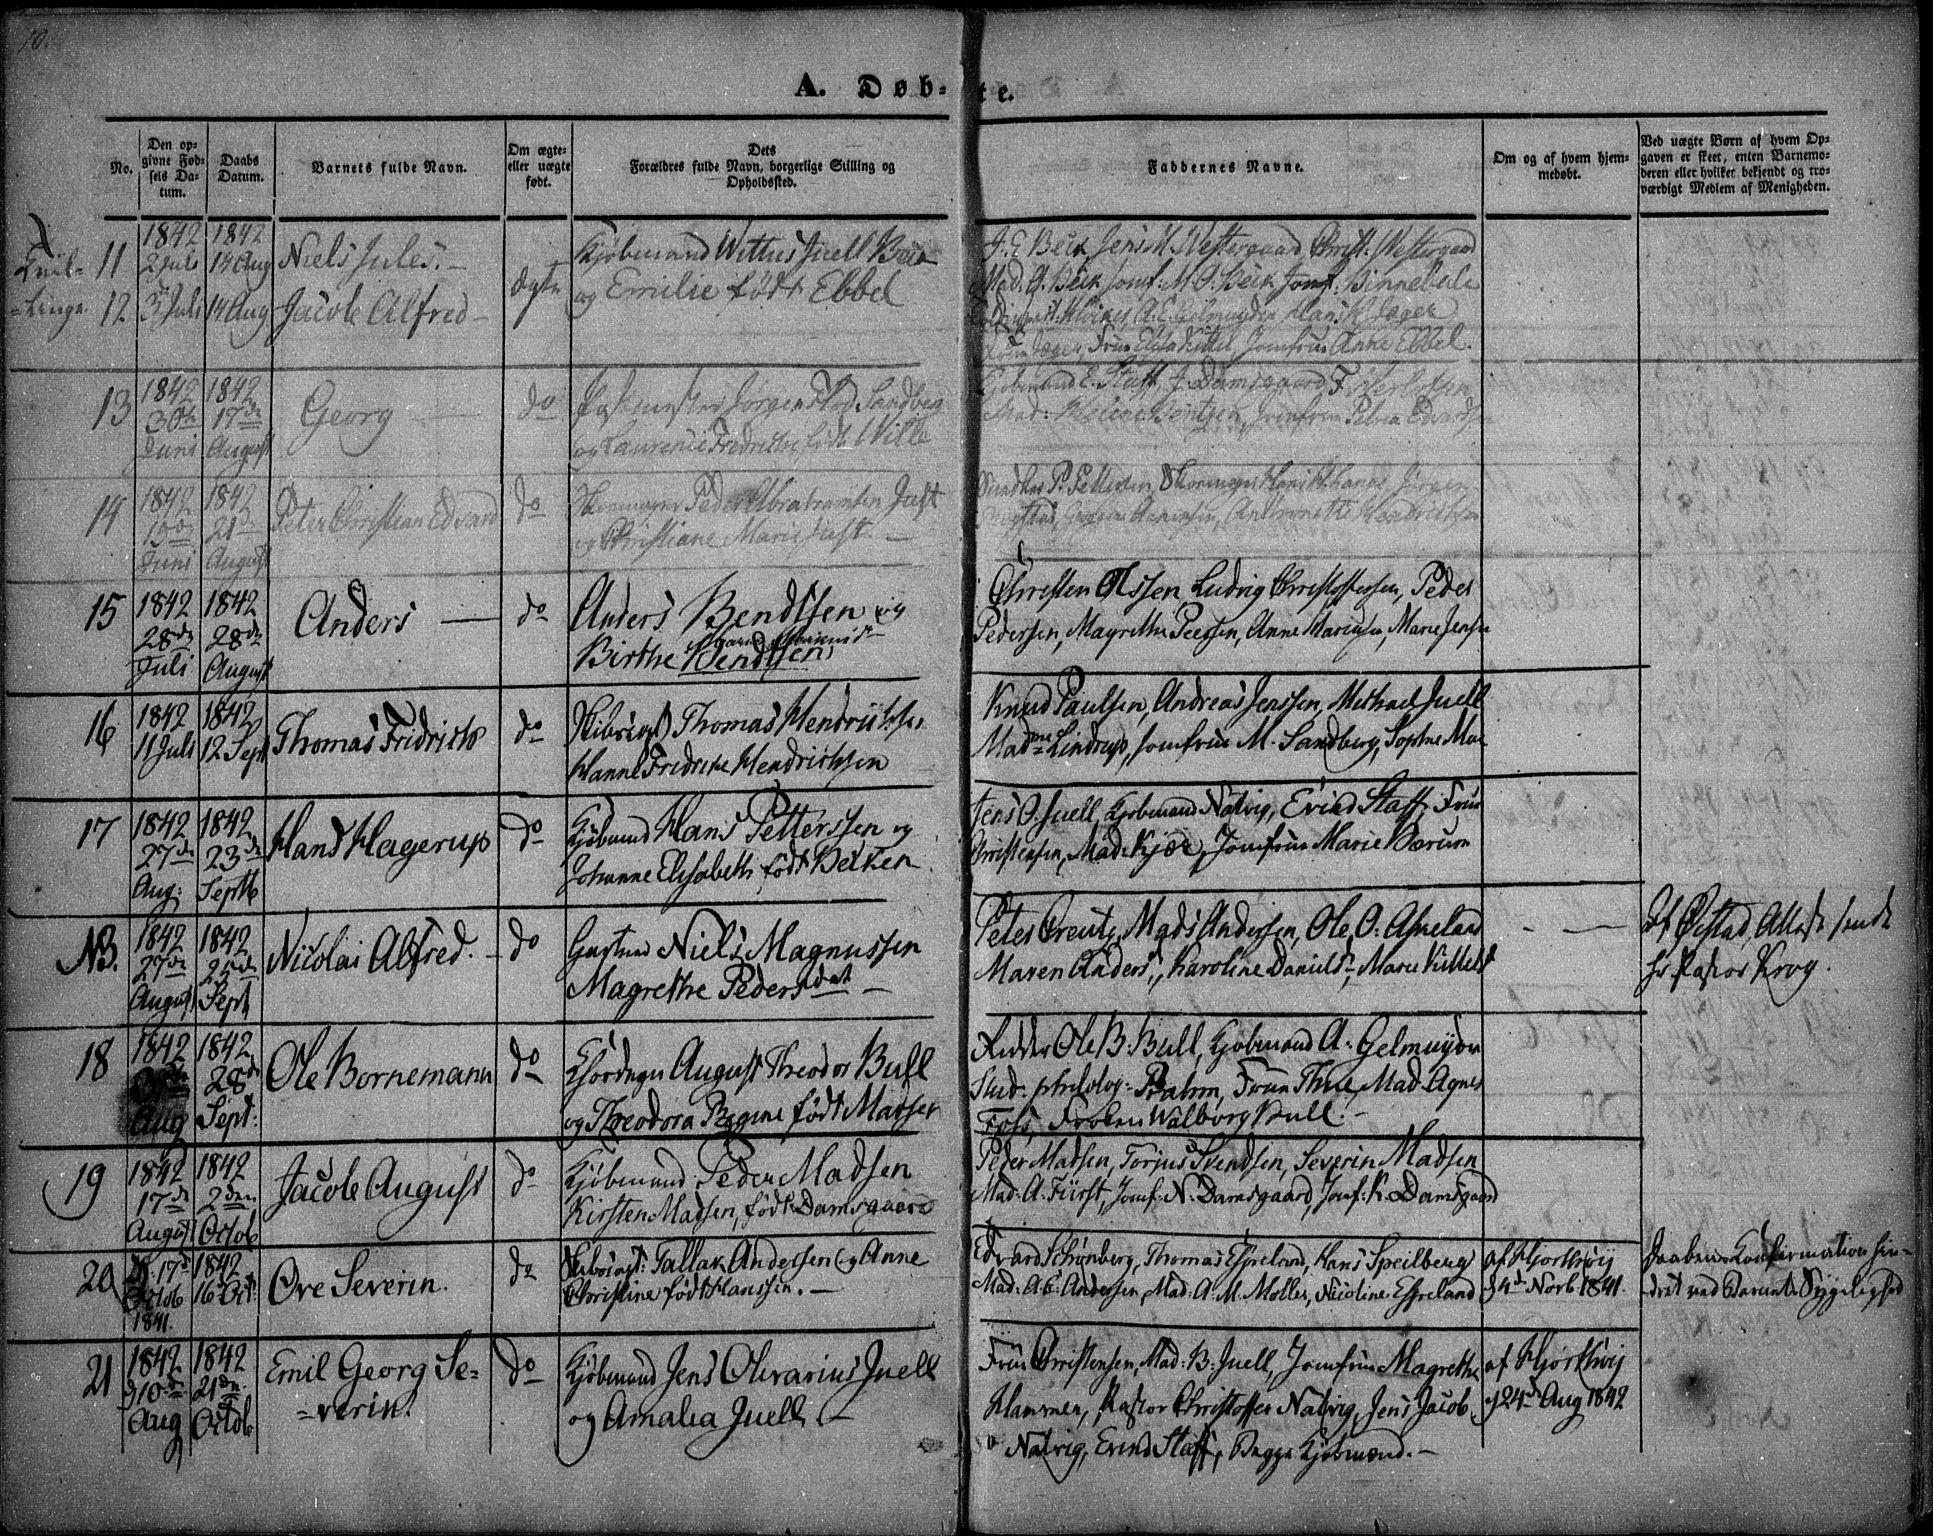 10.
A. Døb-te.
No.
Den opgivne Fødsels Datum.
Daabs Datum.
Barnets fulde Navn.
Om ægte- eller uægte født.
Dets Forældres fulde Navn, borgerlige Stilling og Opholdssted.
Faddernes Navne.
Om og af hvem hjemmedøbt.
Ved uægte Børn af hvem Opgaven er skeet, enten Barnemoderen eller hvilket bekjendt og troværdigt Medlem af Menigheden.
11 1842 2 Juli 1842 14 Aug Niels Jules. Kjøbmand Wittus Juell Beck
J. E Beck Jens M. Westergaard Christ: Westergaard
12 3 Juli 14 Aug Jacob Alfred ægte og Emilie født Ebbel
Mad. A. Beck Jomf: M. O. Beck Jomf:
A. E. Gelmuyden Hans H Jæger
Fru Jæger, Fru Elisa Kittel, Jomfru Anne Ebbel.
13 1842 30te Juni 1842 17de August Georg do Sandberg
og Laurenze Fredrikke født Wille
Kjøbmand E. Staff, J. Damsgaard
Mad: Helene Bentzen, Jomfru Petrea
14 1842 Juni 1842 21de August Peter Christian Edvard do Peder Abrahamsen Just
og Christiane Marie Just.
P. Pettersen,
15 1842 28de Juli 1842 28de August Anders do Anders Bendtsen og
Birthe Bendtsen
Christen Olssen, Ludvig Christoffersen, Peder
Pedersen, Magrethe Peersen, Anne Mariesen, Marie Jensen
16 1842 11 Juli 1842 12 Sept Thomas Fridrich do Skibsregt Thomas Hendrichsen
Hanne Fredrikke Hendrichsen
Knud Paulsen, Andreas Jenssen, Michael Juell
Madme Lindrup, Jomfrue M. Sandberg, Sophie
17 1842 27de Aug: 1842 23de Septb Hans Hagerup do Kjøbmand Hans Petterssen og
Johanne Elisabeth født Betzen
Jens O. Juell, Kjøbmand Natvig, Evind Staff, Frue
Christensen, Mad: Kjær, Jomfrue Marie Bærum
NB. 1842 27de August 1842 25de Sept Nicolai Alfred. do Gastuer Niels Magnussen
Magrethe Pedersdat
Peter Creutz, Mads Andersen, Ole O. Askeland
Maren Anders, Karoline Daniels, Marie Kittels
Af Øistad, Attest sendt
Hr Pastor Krog.
18 1842 Aug 1842 28de Sept: Ole Bornemann do August Theodor Bull
og Theodora Regine født Madsen
Ridder Ole B. Bull, Kjøbmand A. Gelmuyden
Stud. philolog: Brahm, Frue Thue, Mad. Agnes
Foss, Frøken Walborg Bull.
19 1842 17de August 1842 2den Octob Jacob August do Kjøbmand Peder Madsen
Kirsten Madsen, født Damsgaard
Peder Madsen, Torjus Svendsen, Severin Madsen
Mad. A. Fürst, Jomf. N. Damsgaard, Jomf. K. Damsgaard
20 d. 17de Octob 1841. 1842 16 Oct: Ove Severin. do Skibsregt: Tallak Andersen og Anne
Christine født Hanssen.
Edvard Schønberg, Thomas Esseland, Hans Speilberg
Mad: A. C. Andersen, Mad. A. M. Møller, Nicoline Esseland
af Hjorthøij
d 4de Novb 1841.
Daabens Konfirmation hin-
dret ved Barnets Sygelighed
21 1842 d10de Aug 1842 21de Octob Emil Georg Se-
verin. do Kjøbmand Jens Olivarius Juell
og Amalia Juell
Frue Christensen, Mad: B: Juell, Jomfrue Magrethe
Hammer, Pastor Christoffer Natvig, Jens Jacob
Natvig, Evind Staff, Bagge Kjøbmand.
af Hjorthøij
d24de Aug 1842